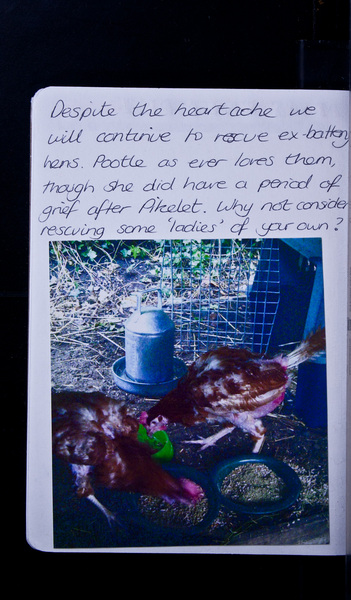 Despite the heartache we
will continue to rescue ex-battery
hens. Pootle as ever loves them,
though she did have a period of
grief after Pikelet. Why not consider
rescuing some 'ladies' of your own?